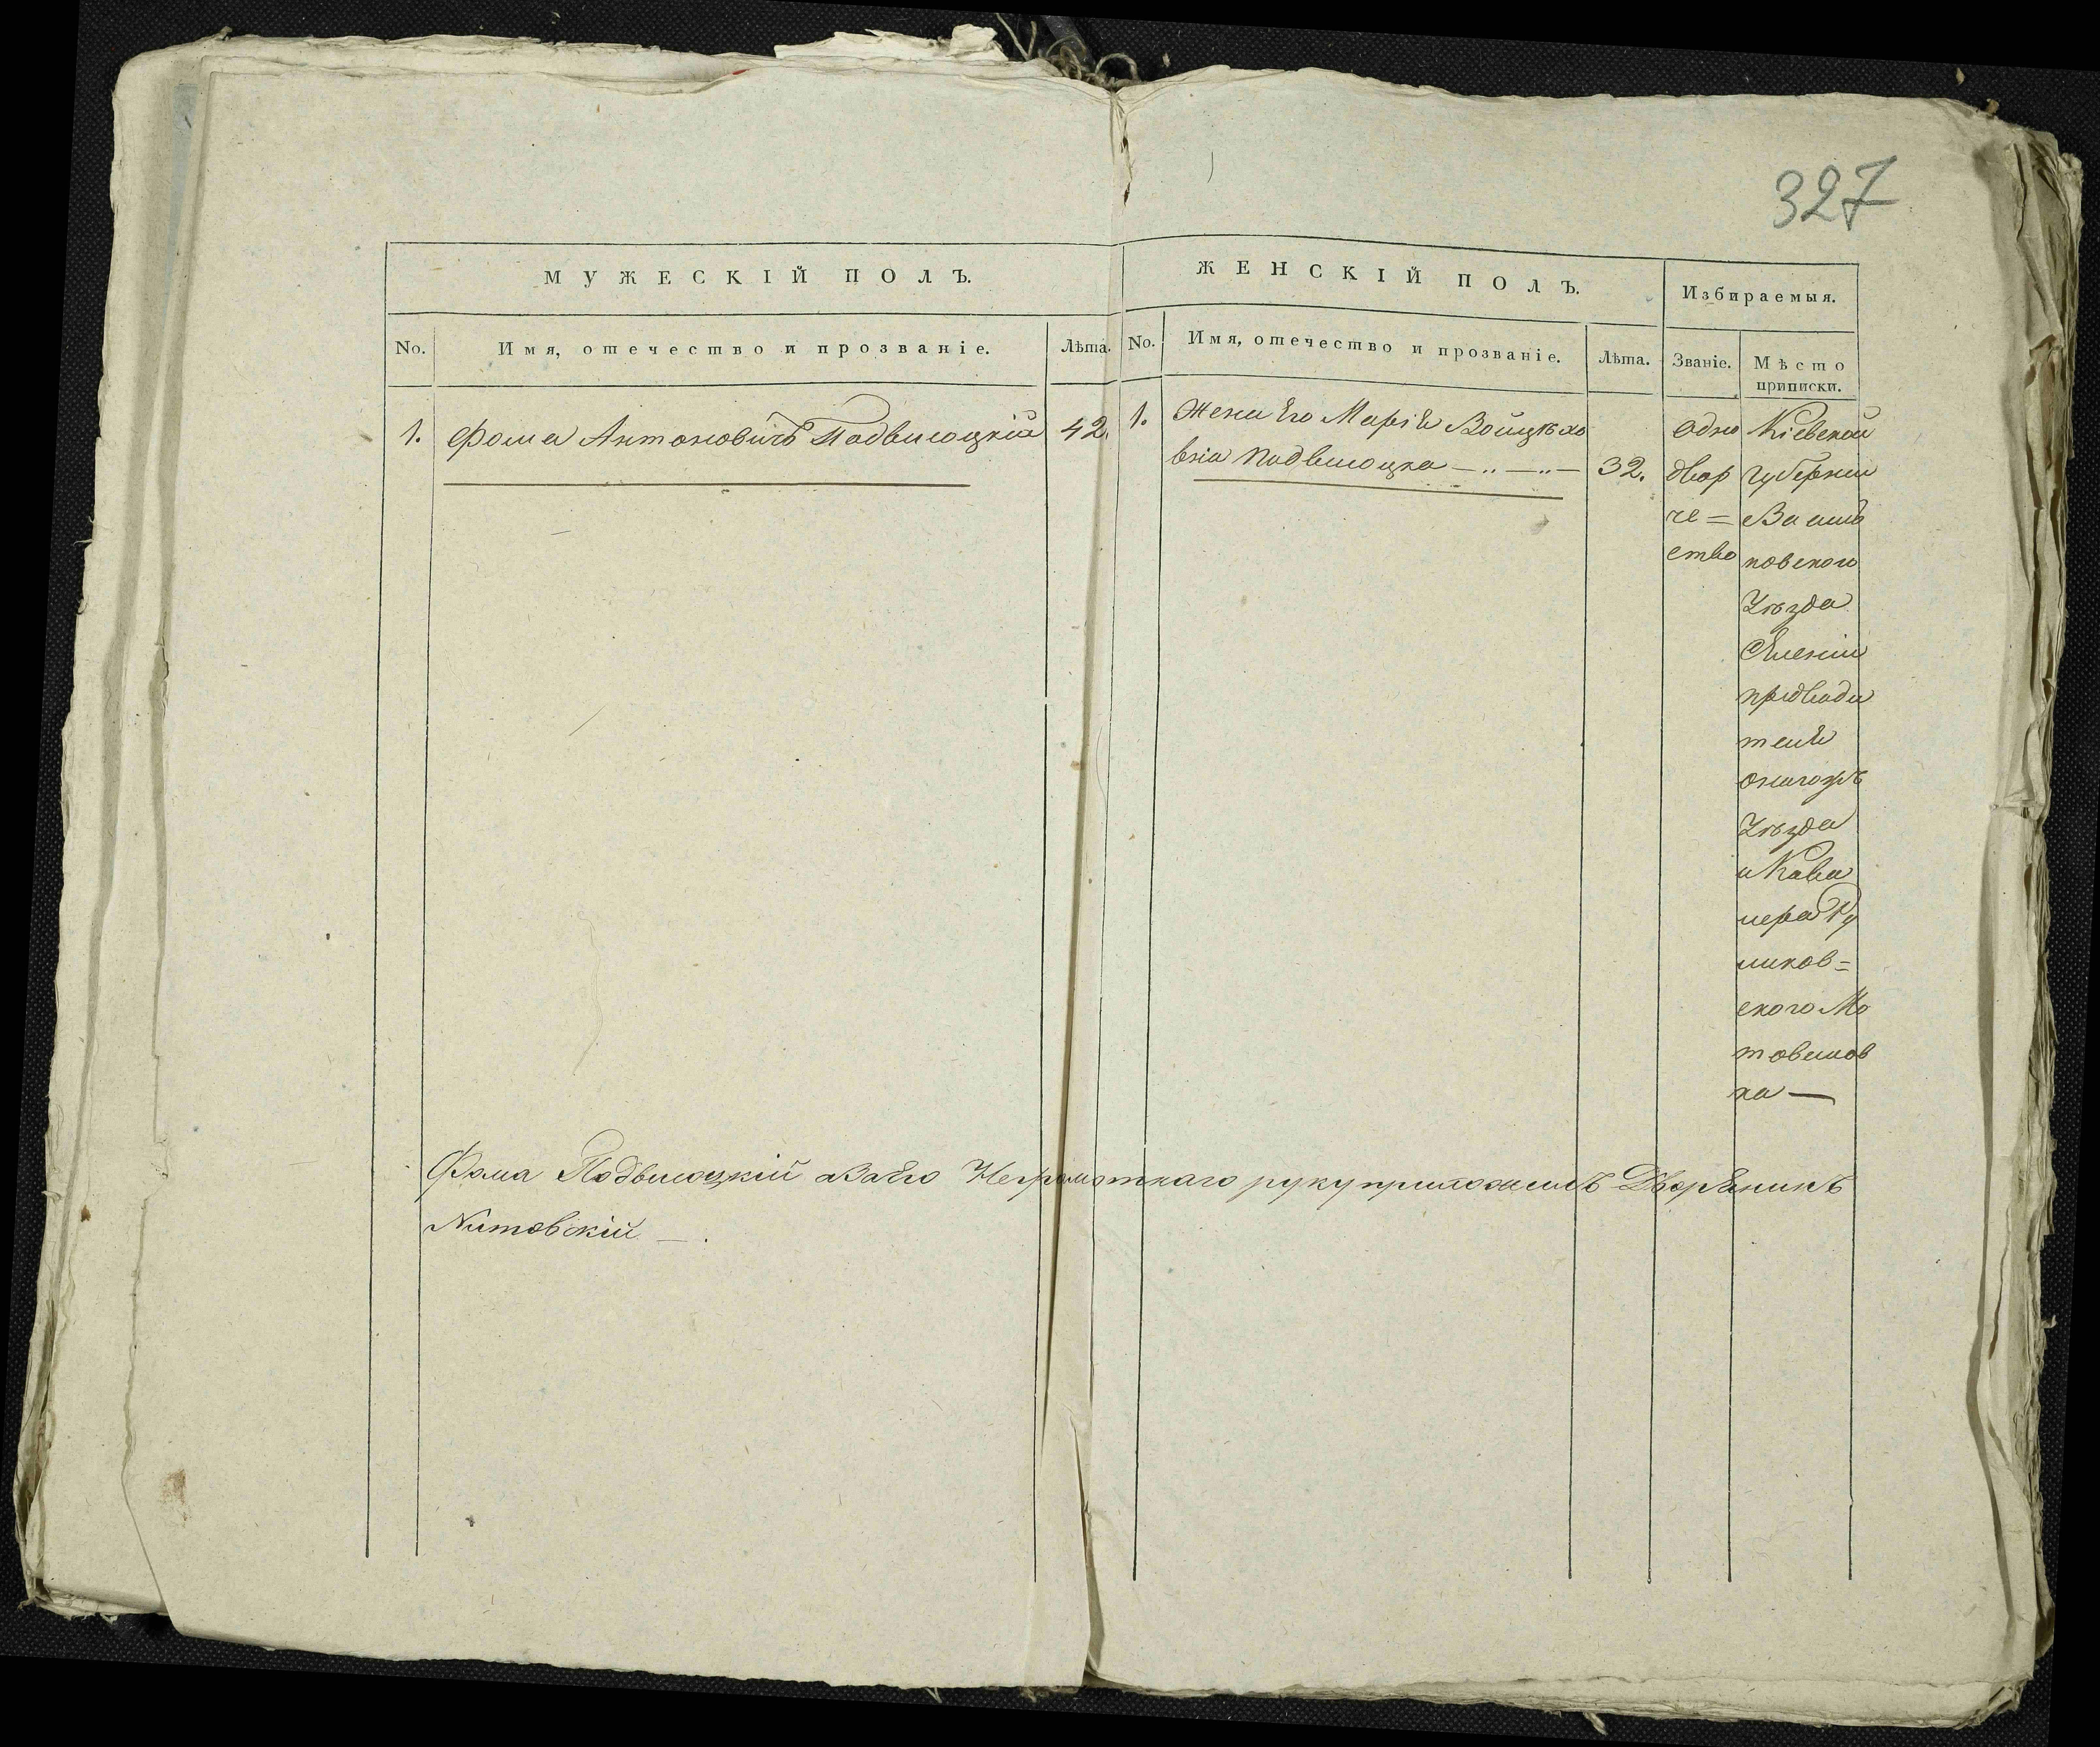 327
МУЖЕСКІЙ ПОЛЪ.
ЖЕНСКІЙ ПОЛЪ.
Избираемыя.
No.
Имя, отечество и прозваніе.
Лѣта.
No.
Имя, отечество и прозваніе.
Лѣта.
Званіе.
Мѣсто
приписки.
1.
Фома Антоновичъ Подвысоцкій
42.
1.
Жена Его Марія Войцѣхо
вна Подвысоцка
32.
Одно
двор
че=
ство
Кіевской
Губерніи
Василь
ковского
Уѣзда
Селеніи
предводи
теля
Уѣзда
и Кава
лера Ру
ликов=
ского Мо
товилов
ка —
Фома Подвысоцкій а За Его Неграмотнаго руку приложилъ Дворянинъ